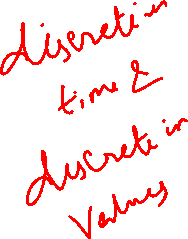 discrete in
time &
discrete in
values